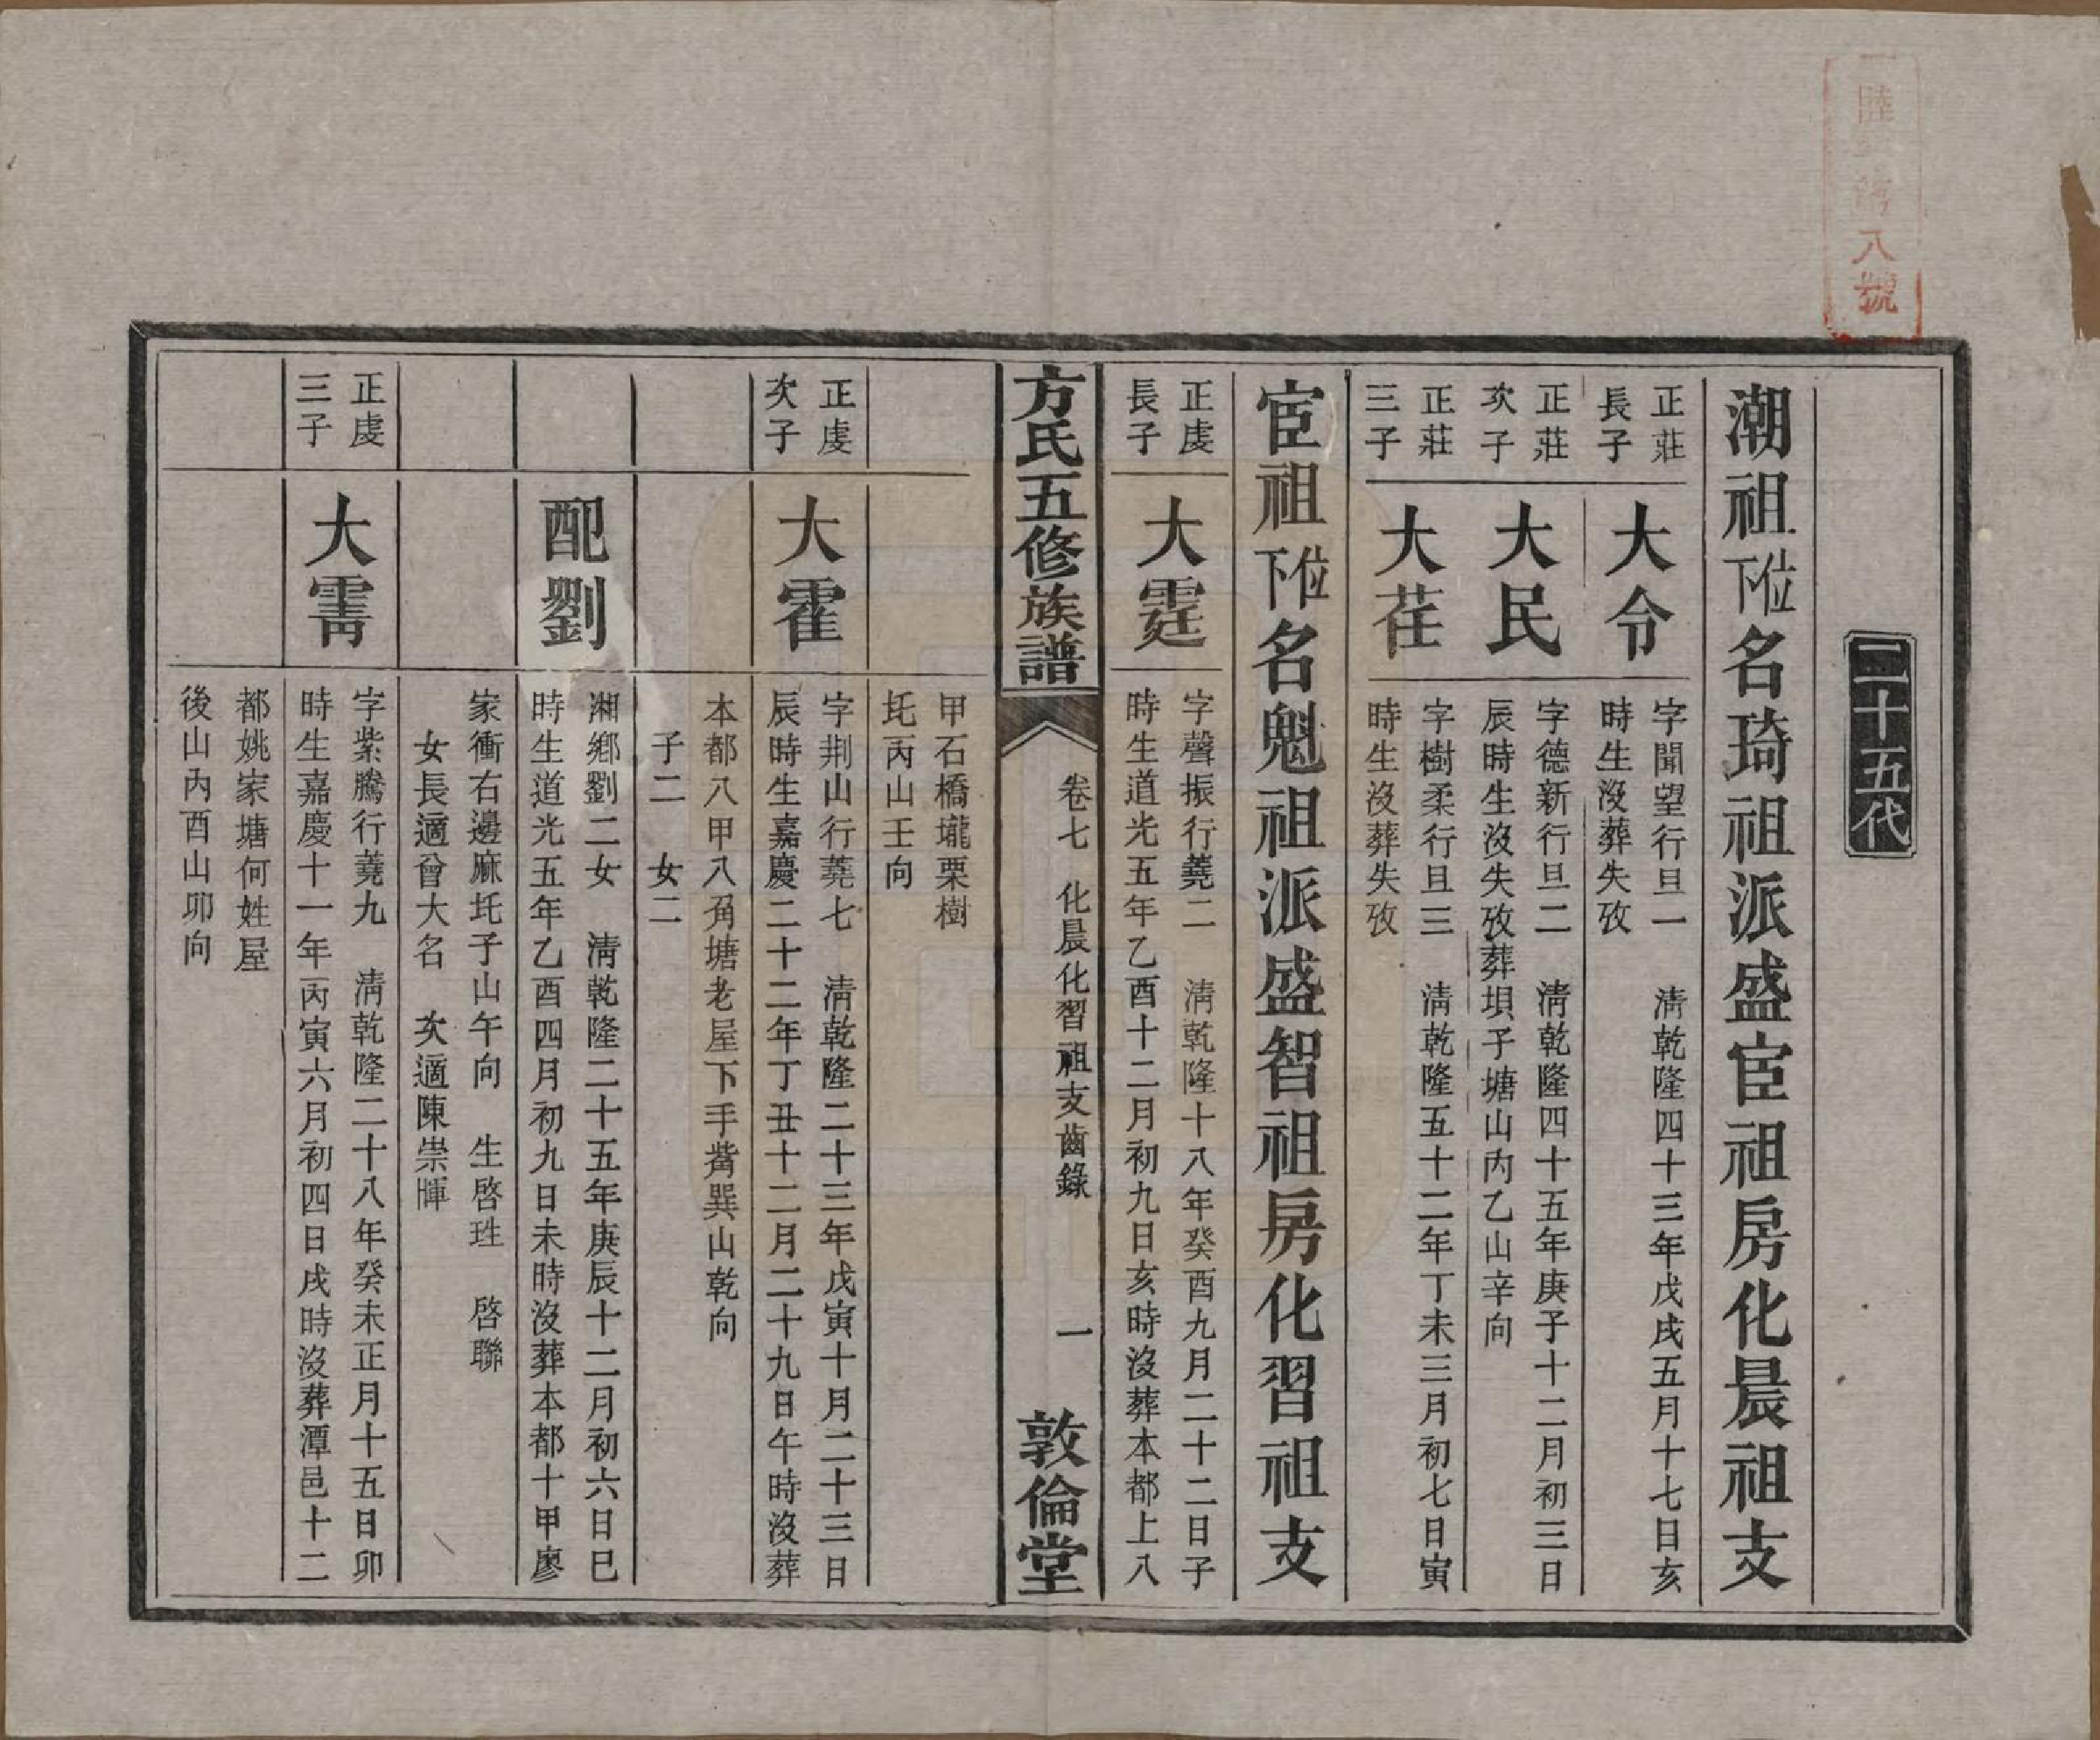 八號
二十五代
潮祖位下名琦祖派盛宦祖房化晨祖支
正莊長子
大令
字聞望行旦一　清乾隆四十三年戊戌五月十七日亥
時生沒葬失攷
正莊次子
大民
字德新行旦二　清乾隆四十五年庚子十二月初三日
辰時生沒失攷葬垻子塘山內乙山辛向
正莊三子
大荏
字樹柔行旦三　清乾隆五十二年丁未三月初七日寅
時生沒葬失攷
宦祖位下名魁祖派盛智祖房化習祖支
正虔長子
大霆
字聲振行蕘二　清乾隆十八年癸酉九月二十二日子
時生道光五年乙酉十二月初九日亥時沒葬本都上八
方氏五修族譜
卷七　化晨化習祖支齒錄　一
敦倫堂
甲石橋壠栗樹
圫丙山壬向
正虔次子
大霍
字荆山行蕘七　清乾隆二十三年戊寅十月二十三日
辰時生嘉慶二十二年丁丑十二月二十九日午時沒葬
本都八甲八角塘老屋下手嘴巽山乾向
子二　女二
配劉
湘鄉劉二女　清乾隆二十五年庚辰十二月初六日巳
時生道光五年乙酉四月初九日未時沒葬本都十甲廖
家衝右邊麻圫子山午向　生啓珄　啓聯
女長適曾大名　次適陳崇暉
正虔三子
大霌
字紫騰行蕘九　清乾隆二十八年癸未正月十五日卯
時生嘉慶十一年丙寅六月初四日戌時沒葬潭邑十二
都姚家塘何姓屋
後山內酉山卯向